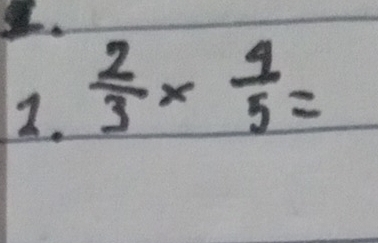 1. 2/3 × 4/5 =